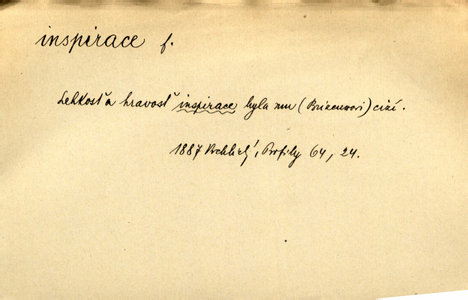 inspirace f.
Lehkost a hravost inspirace byla mu (Brizeuxovi) cizí.
1887 Vrchlický, Profily 64, 24.